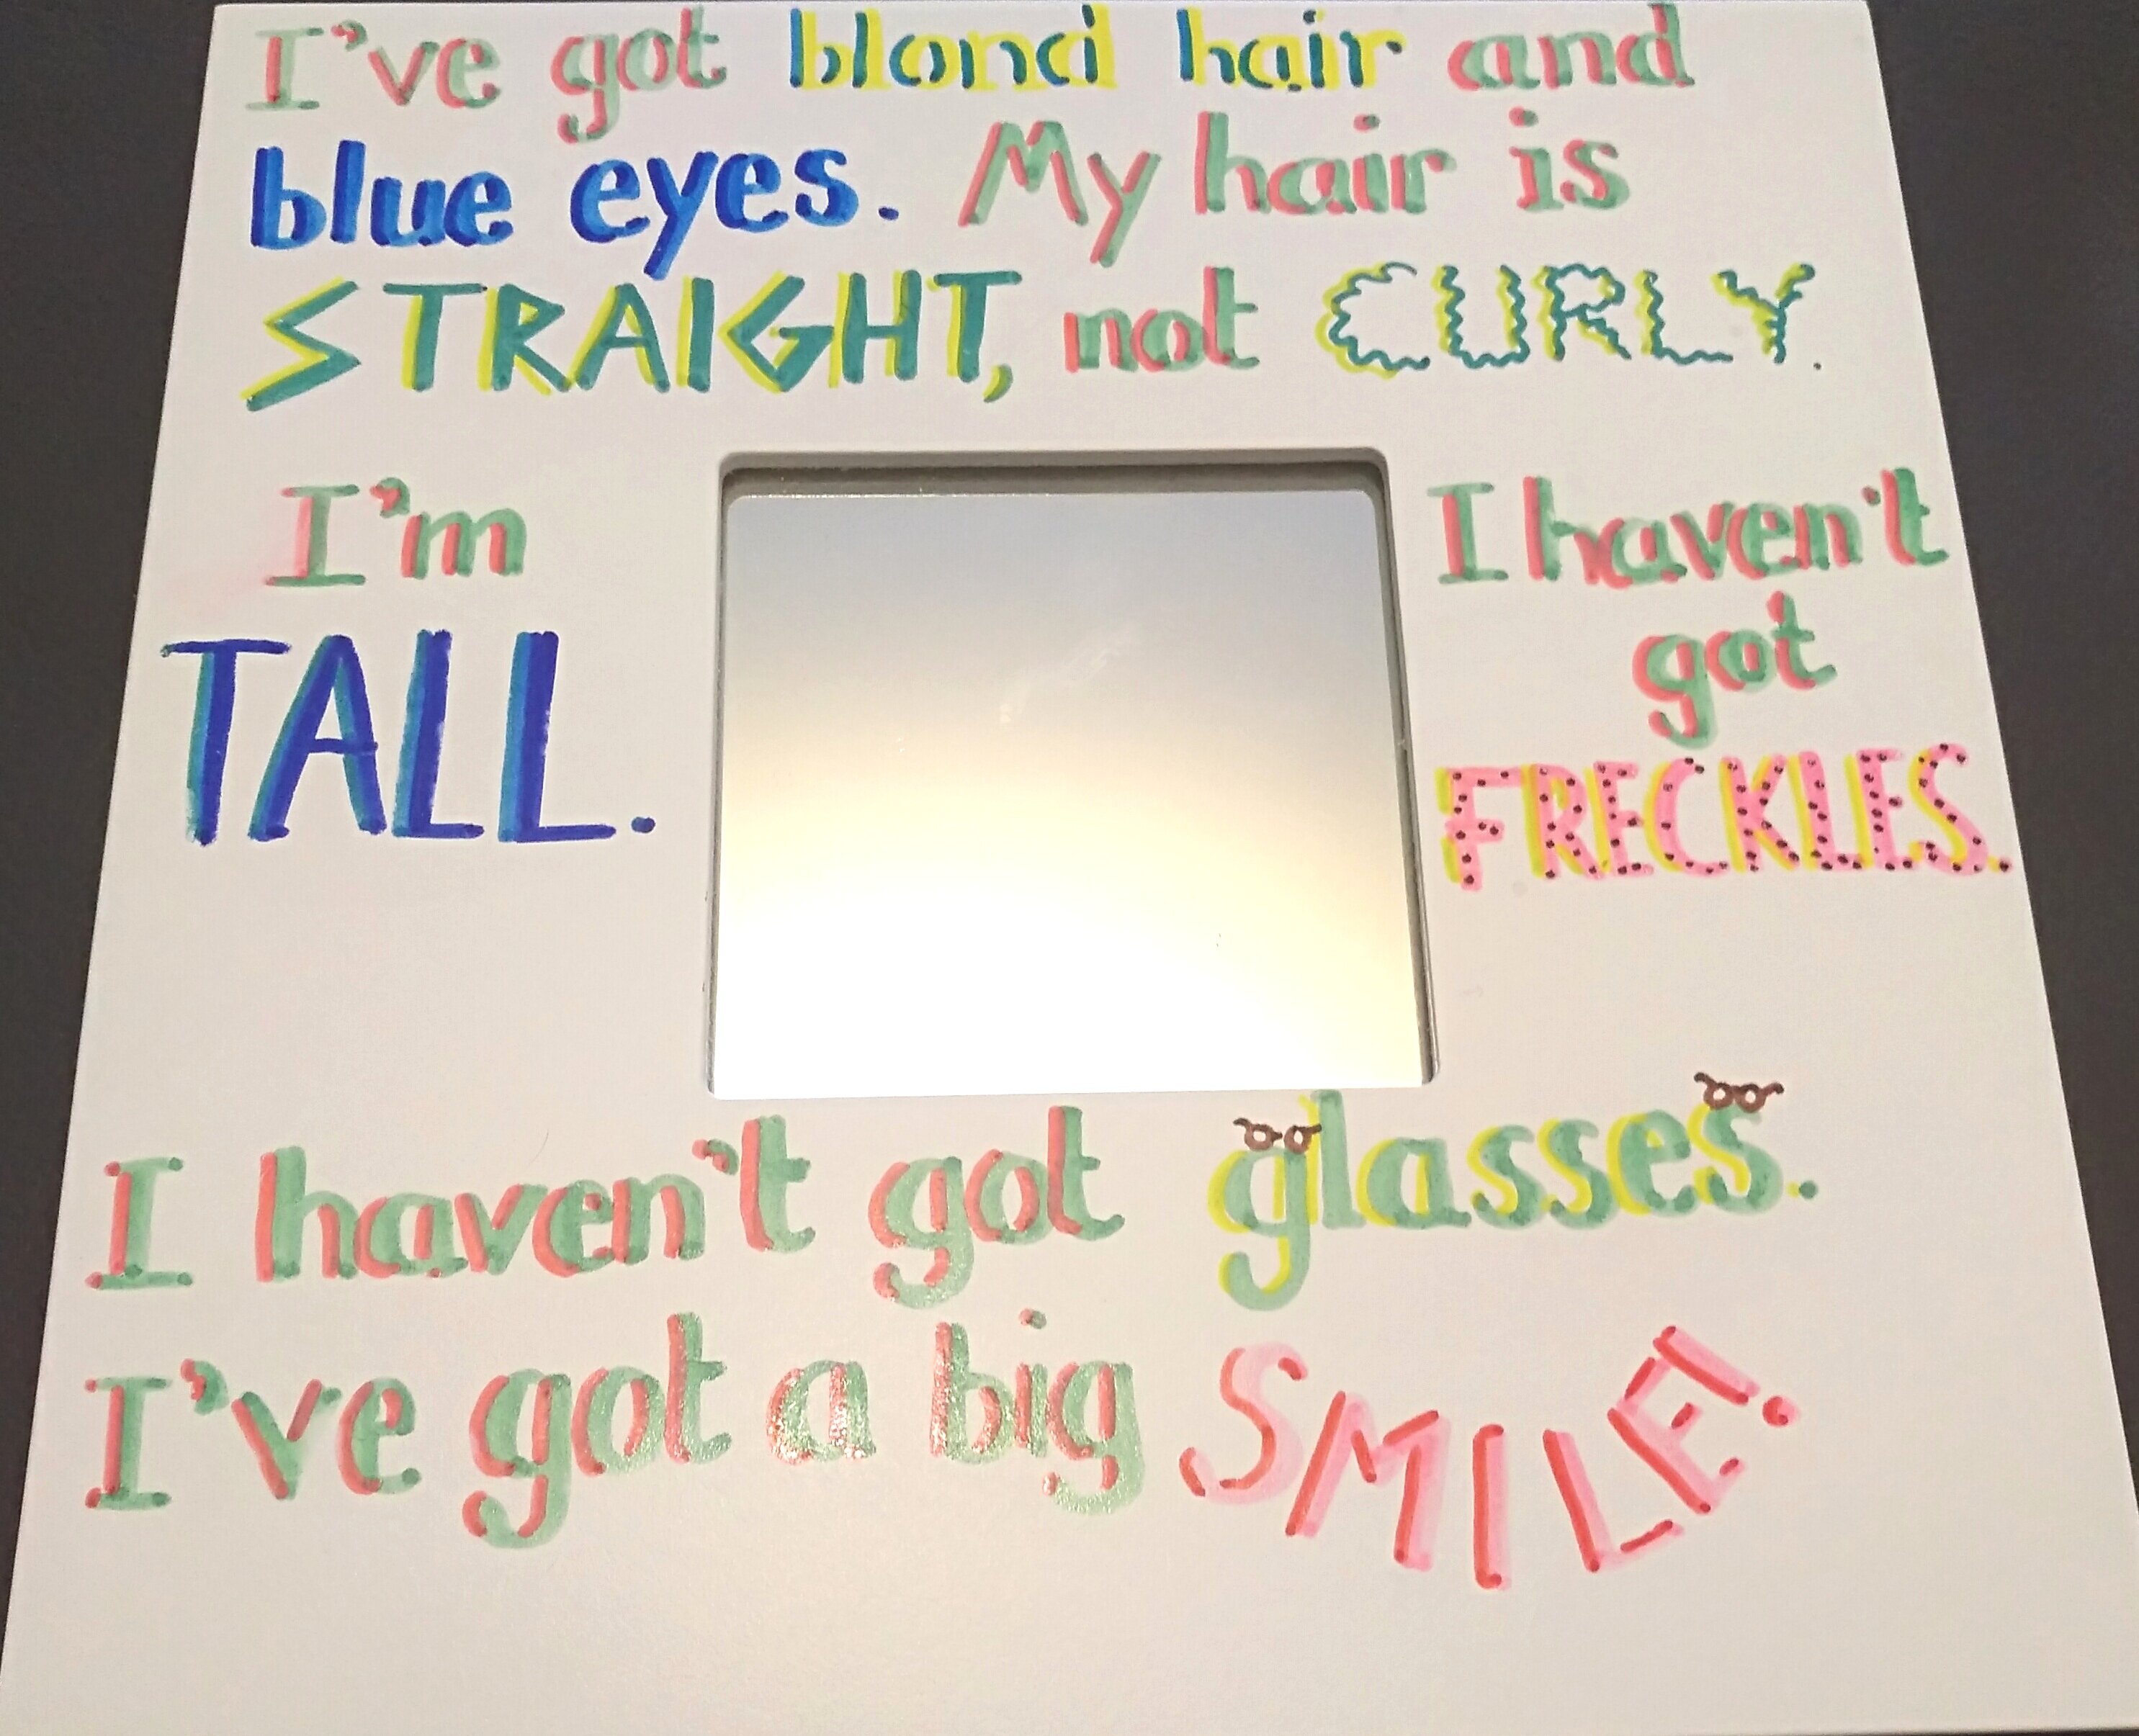 I've got blond hair and
blue eyes. My hair is
STRAIGHT, not CURLY.
I'm
TALL.
I haven't
got
FRECKLES.
I haven't got glasses.
I've got a big SMILE!